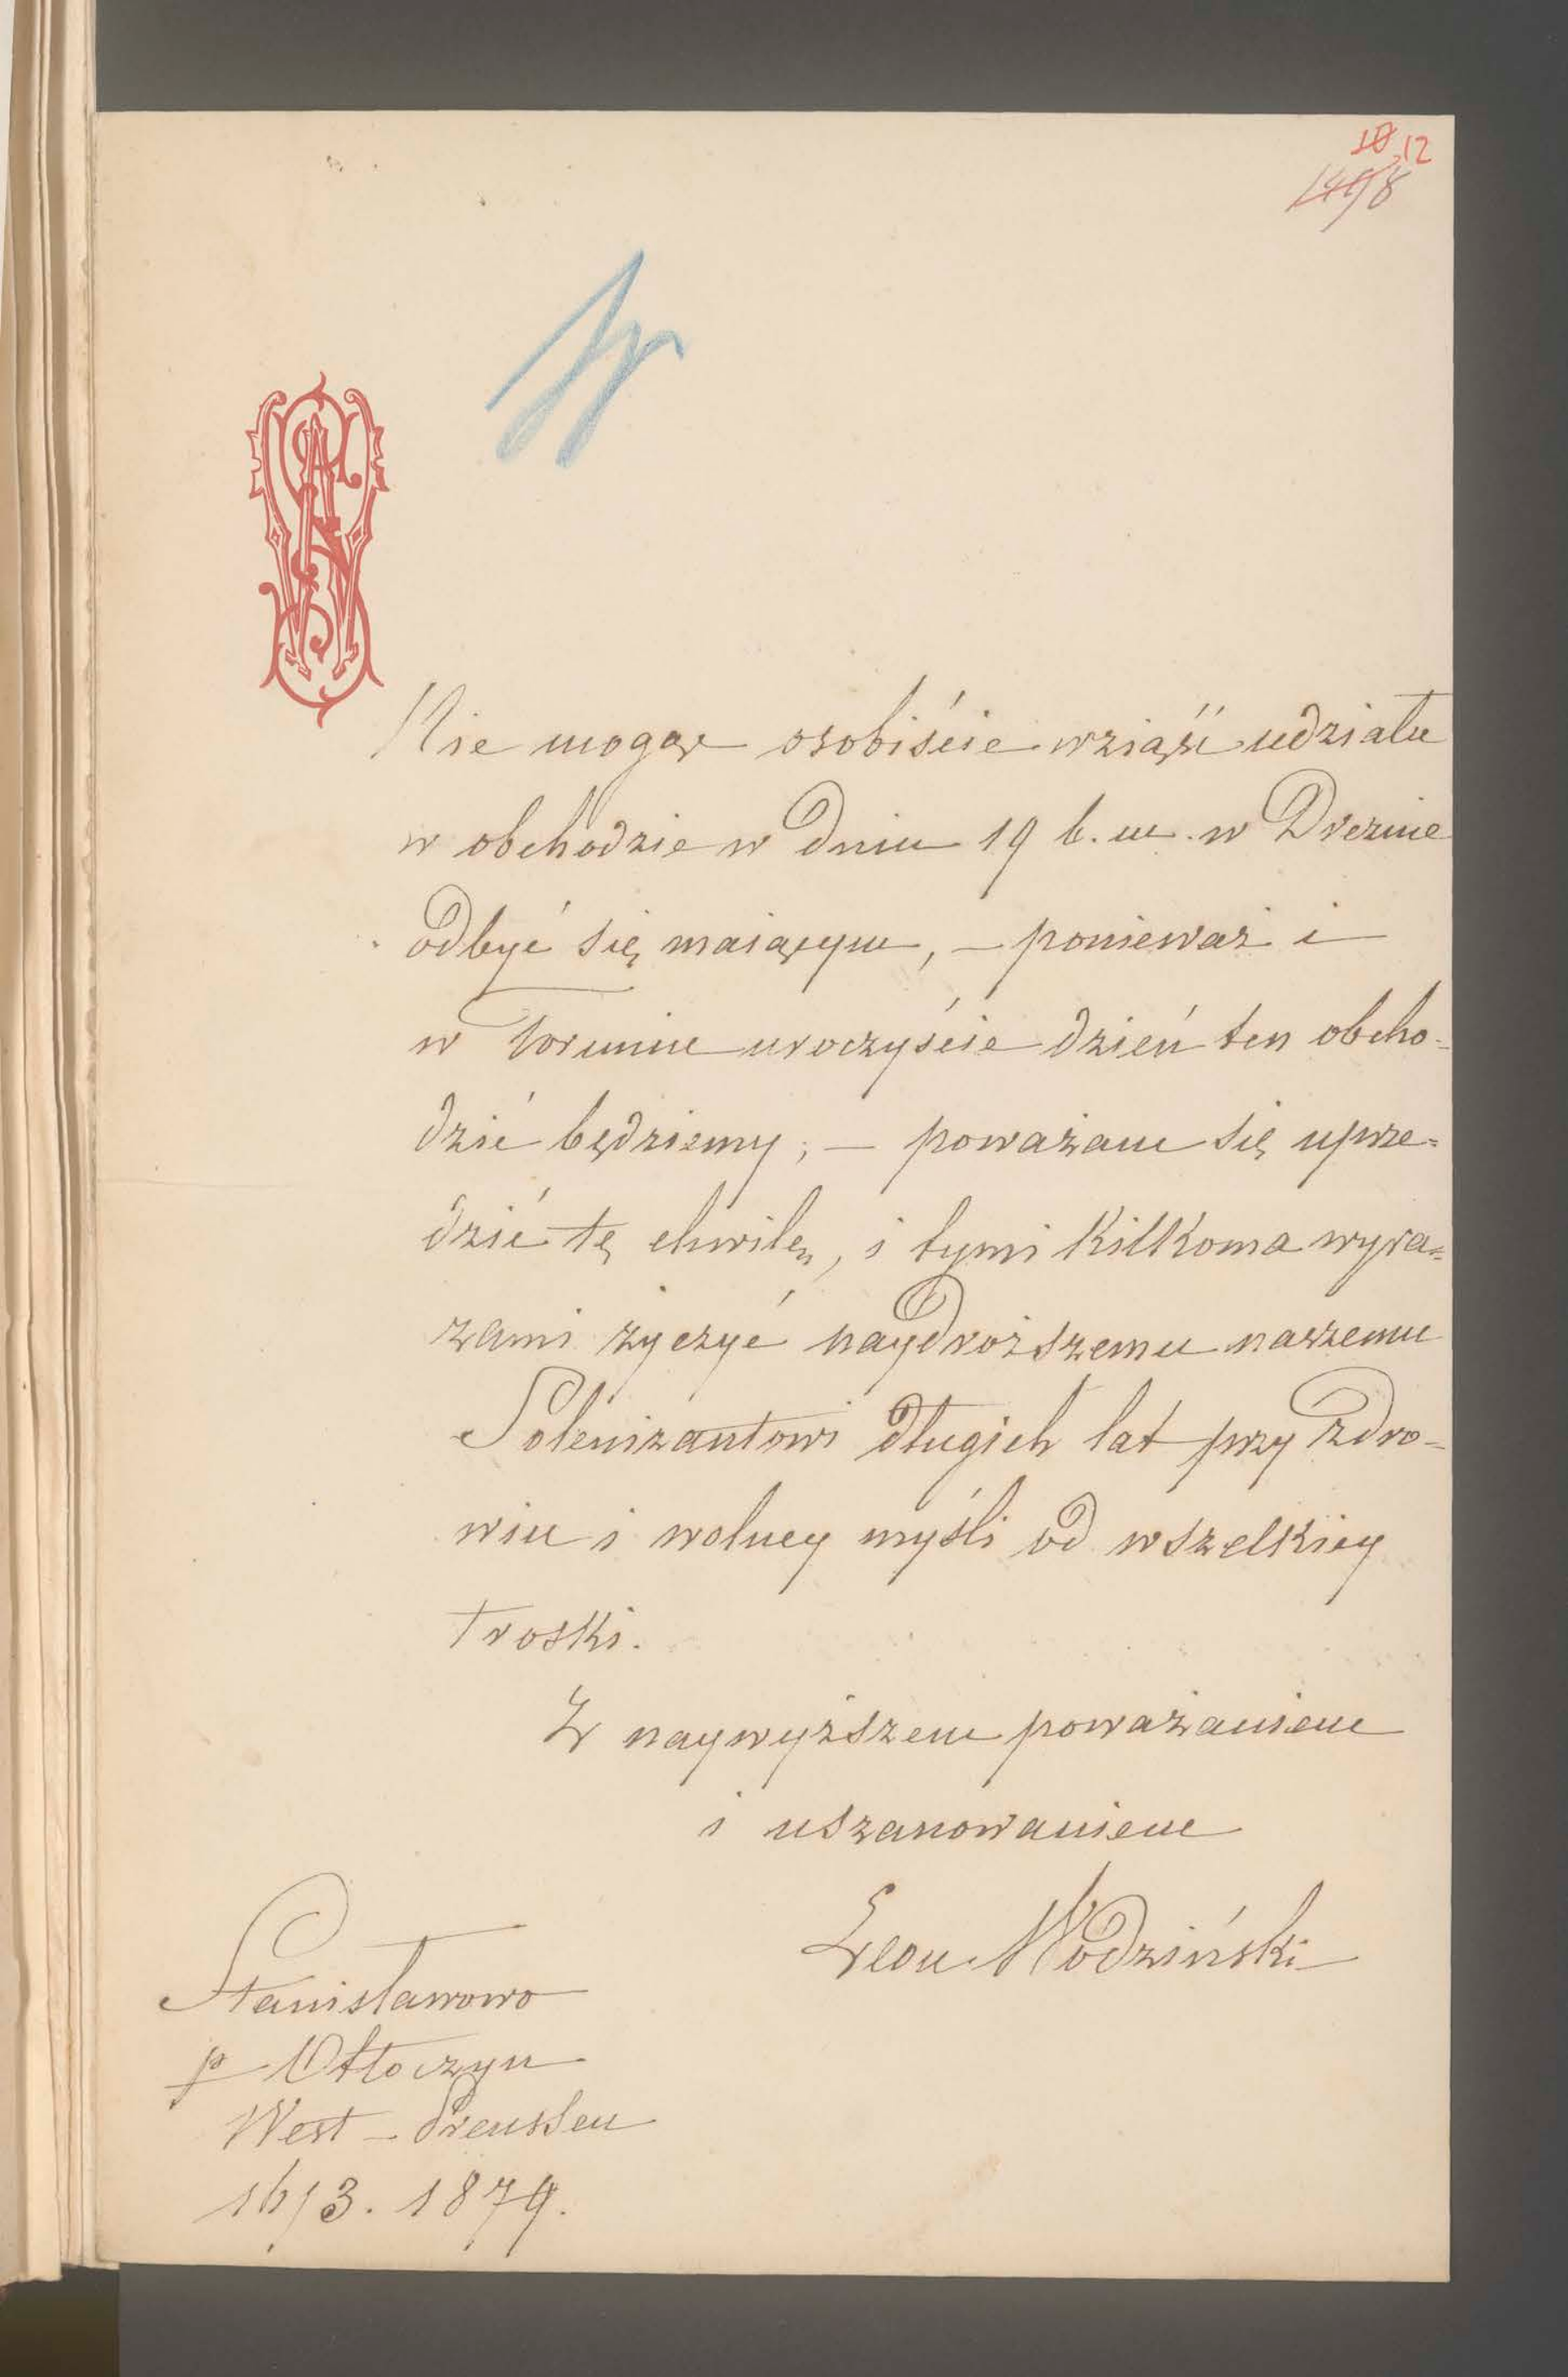 12
8
Nie mogąc osobiście wziąść udziału
w obchodzie w dniu 19 b. m. w Dreznie
odbyć się maiącym, – ponieważ i
w Toruniu uroczyście dzień ten obcho-
dzić będziemy; – poważam się uprze-
dzić tę chwilę, i tymi kilkoma wyra-
zami życzyć naydroższemu naszemu
Solenizantowi długich lat przy zdro-
wiu i wolney myśli od wszelkiey
troski.
Z naywyższem poważaniem
i uszanowaniem
Leon Wodziński
Stanisławowo
p Ottoczyn
West-Preussen
16/3. 1879.